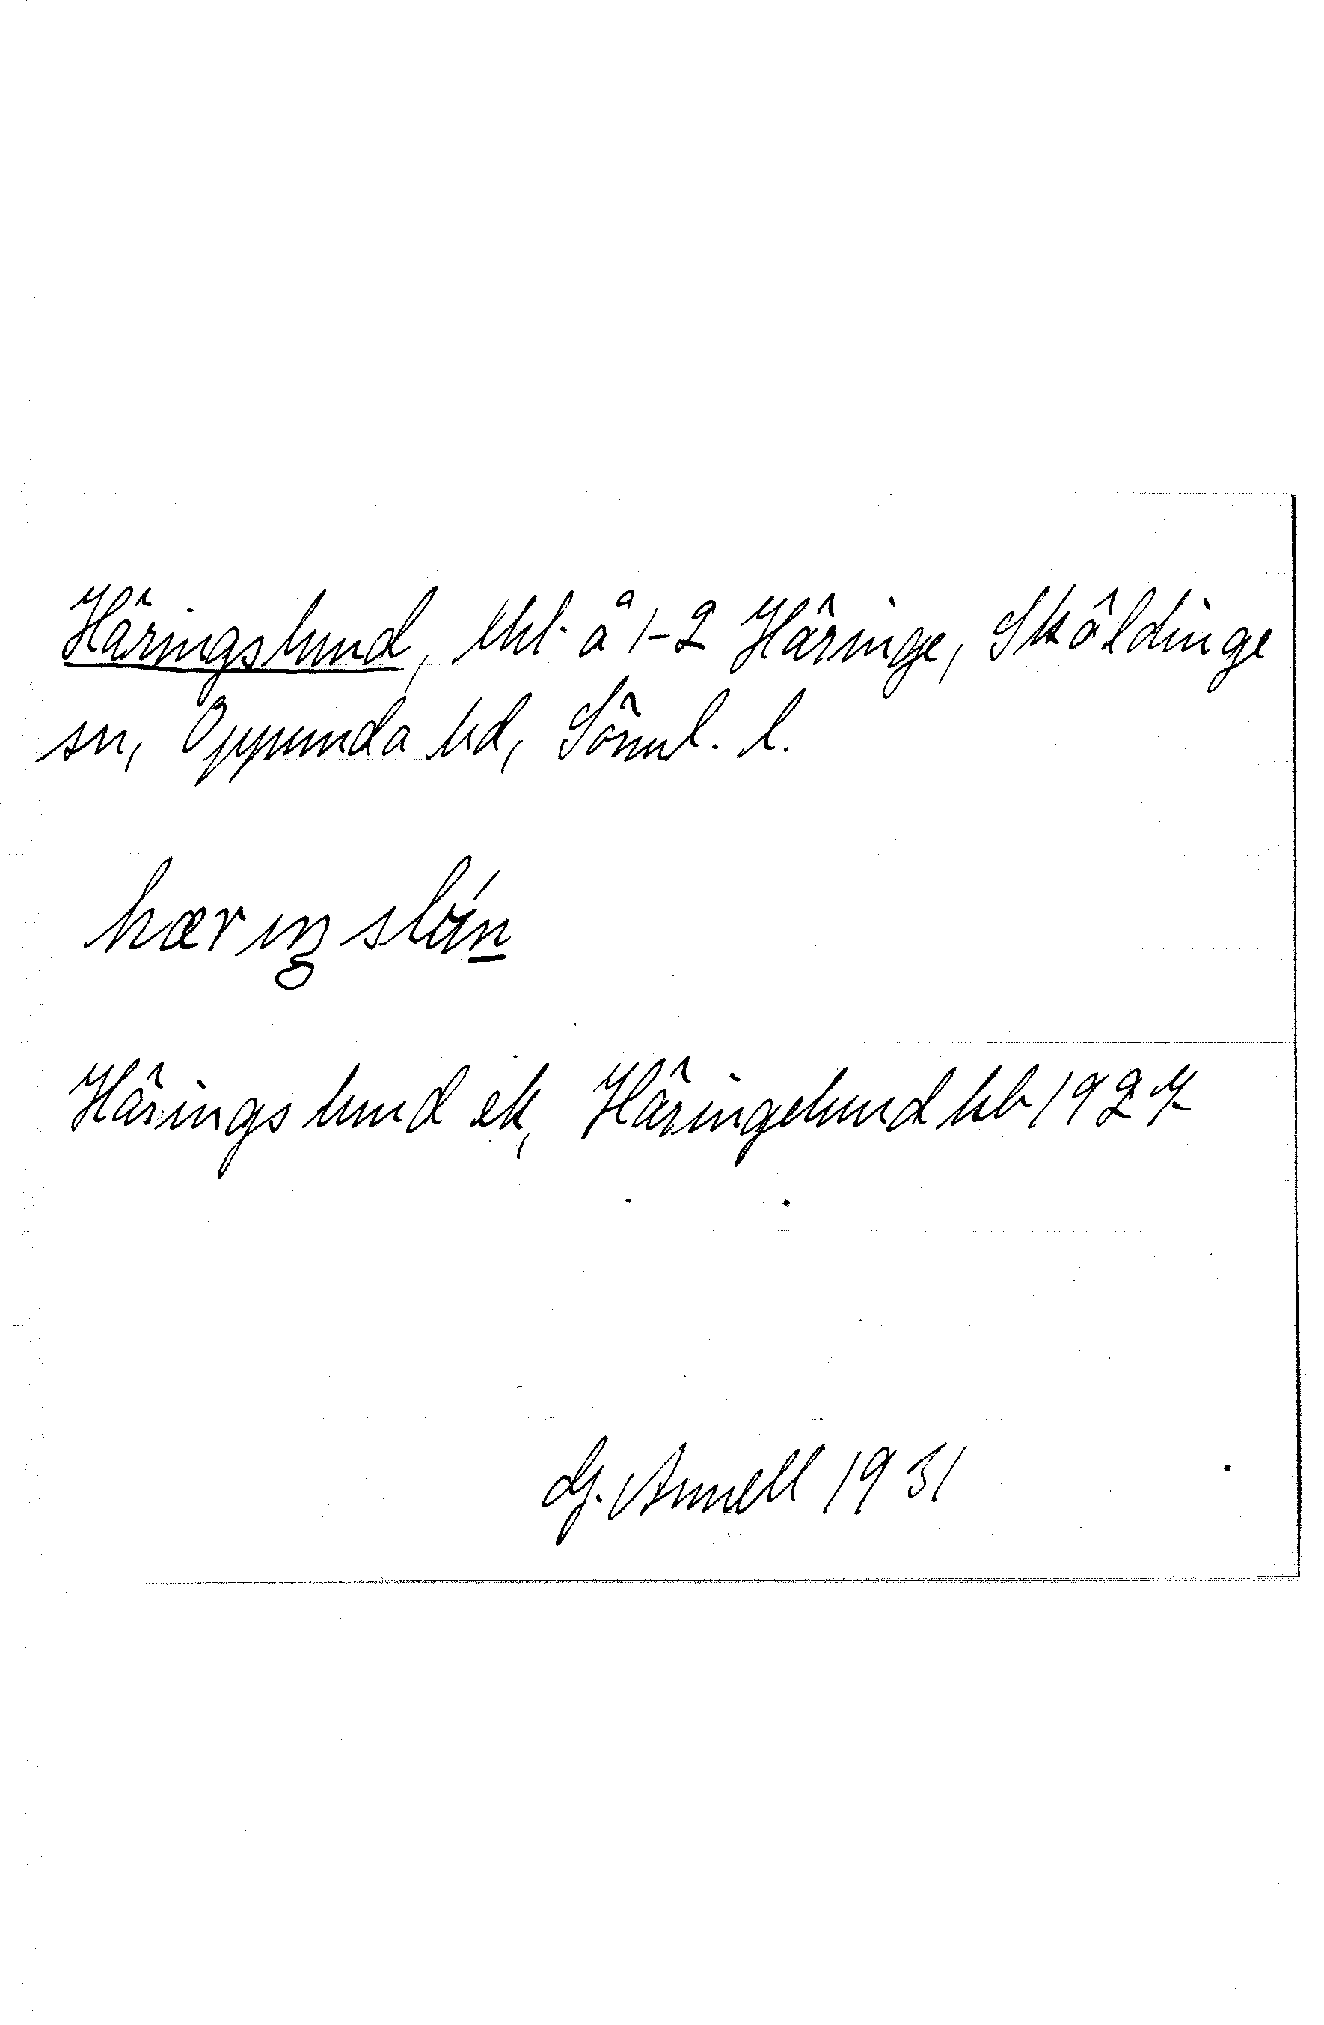 Häringslund, lht. å 1-2 Häringe, Sköldinge
sn, Oppunda hd, Söml. l.
Häringslund ek, Häringelund kb 1927
G. Annell 1931